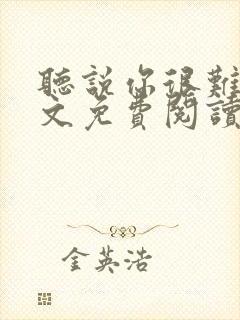 聽說你很難
文免費閱讀
金英浩